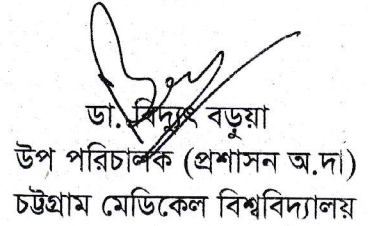 ডা. বিদ্যুৎ বড়ুয়া
উপ পরিচালক (প্রশাসন অ.দা)
চট্টগ্রাম মেডিকেল বিশ্ববিদ্যালয়